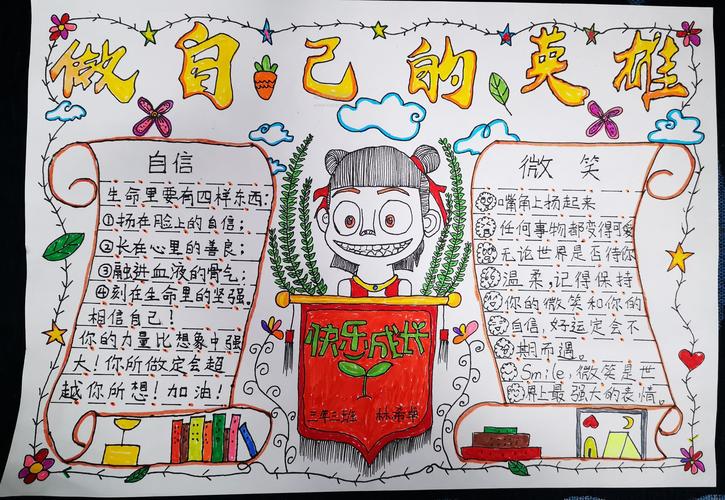 做自己的英雄
自信
生命里要有四样东西:
①扬在脸上的自信;
②长在心里的善良;
③融进血液的骨气;
④刻在生命里的坚强。
相信自己!
你的力量比想象中强
大!你所做定会超
越你所想!加油!
快乐成长
三年三班 林希
微笑
嘴角上扬起来
任何事物都变得可爱
无论世界是否待你
温柔,记得保持
你的微笑和你的
自信,好运定会不
期而遇。
Smile,微笑是世
界上最强大的表情。